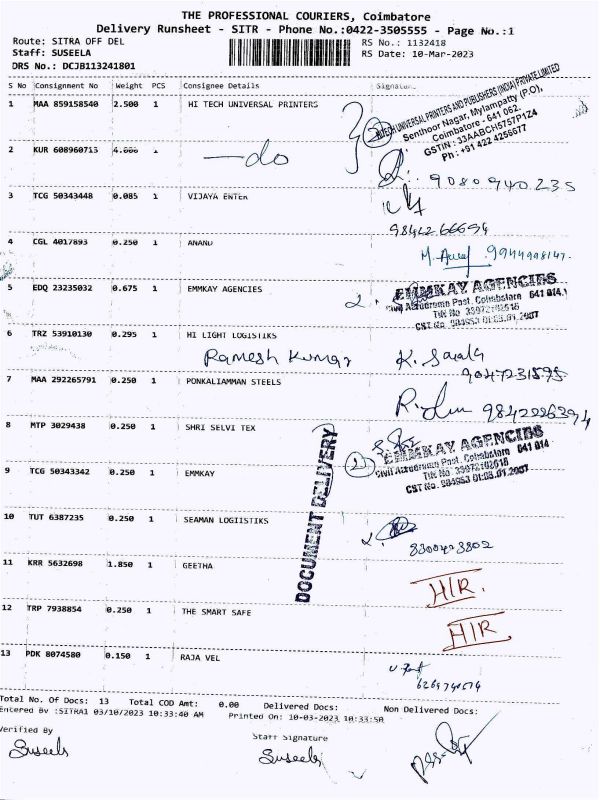 THE PROFESSIONAL COURIERS, Coimbatore
Delivery Runsheet - SITR - Phone No.:0422-3505555 - Page No.:1
Route: SITRA OFF DEL RS No.: 1132418
Staff: SUSEELA RS Date: 10-Mar-2023
DRS No.: DCJB113241801
S No Consignment No Weight PCS Consignee Details Signature
1 MAA 859158540 2.500 1 HI TECH UNIVERSAL PRINTERS
HITECH UNIVERSAL PRINTERS AND PUBLISHERS (INDIA) PRIVATE LIMITED
Senthoor Nagar, Mylampatty (P.O),
Coimbatore - 641 062
GSTIN : 33AABCH5757P1Z4
Ph : +91 422 4256677
2 KUR 608960713 4.000 1
do
9080940235
3 TCG 50343448 0.085 1 VIJAYA ENTER
9842266694
4 CGL 4017893 0.250 1 ANAND
5 EDQ 23235032 0.675 1 EMMKAY AGENCIES
EMMKAY AGENCIES
Civil Aerodrome Post, Coimbatore 641 014
CST No. 984953 01.03.01.2007
6 TRZ 53910130 0.295 1 HI LIGHT LOGISTIKS
Ramesh Kumar K. Sarala
9047231595
7 MAA 292265791 0.250 1 PONKALIAMMAN STEELS
9842226394
8 MTP 3029438 0.250 1 SHRI SELVI TEX
DOCUMENT DELIVERY
EMMKAY AGENCIES
Civil Aerodrome Post, Coimbatore 641 014
CST No. 984953 01.03.01.2007
9 TCG 50343342 0.250 1 EMMKAY
10 TUT 6387235 0.250 1 SEAMAN LOGIISTIKS
11 KRR 5632698 1.850 1 GEETHA
H/R.
12 TRP 7938854 0.250 1 THE SMART SAFE
H/R
13 PDK 8074580 0.150 1 RAJA VEL
Total No. Of Docs: 13 Total COD Amt: 0.00 Delivered Docs: Non Delivered Docs:
Entered By :SITRA1 03/10/2023 10:33:40 AM Printed On: 10-03-2023 10:33:50
Verified By Staff Signature
Suseela Suseela